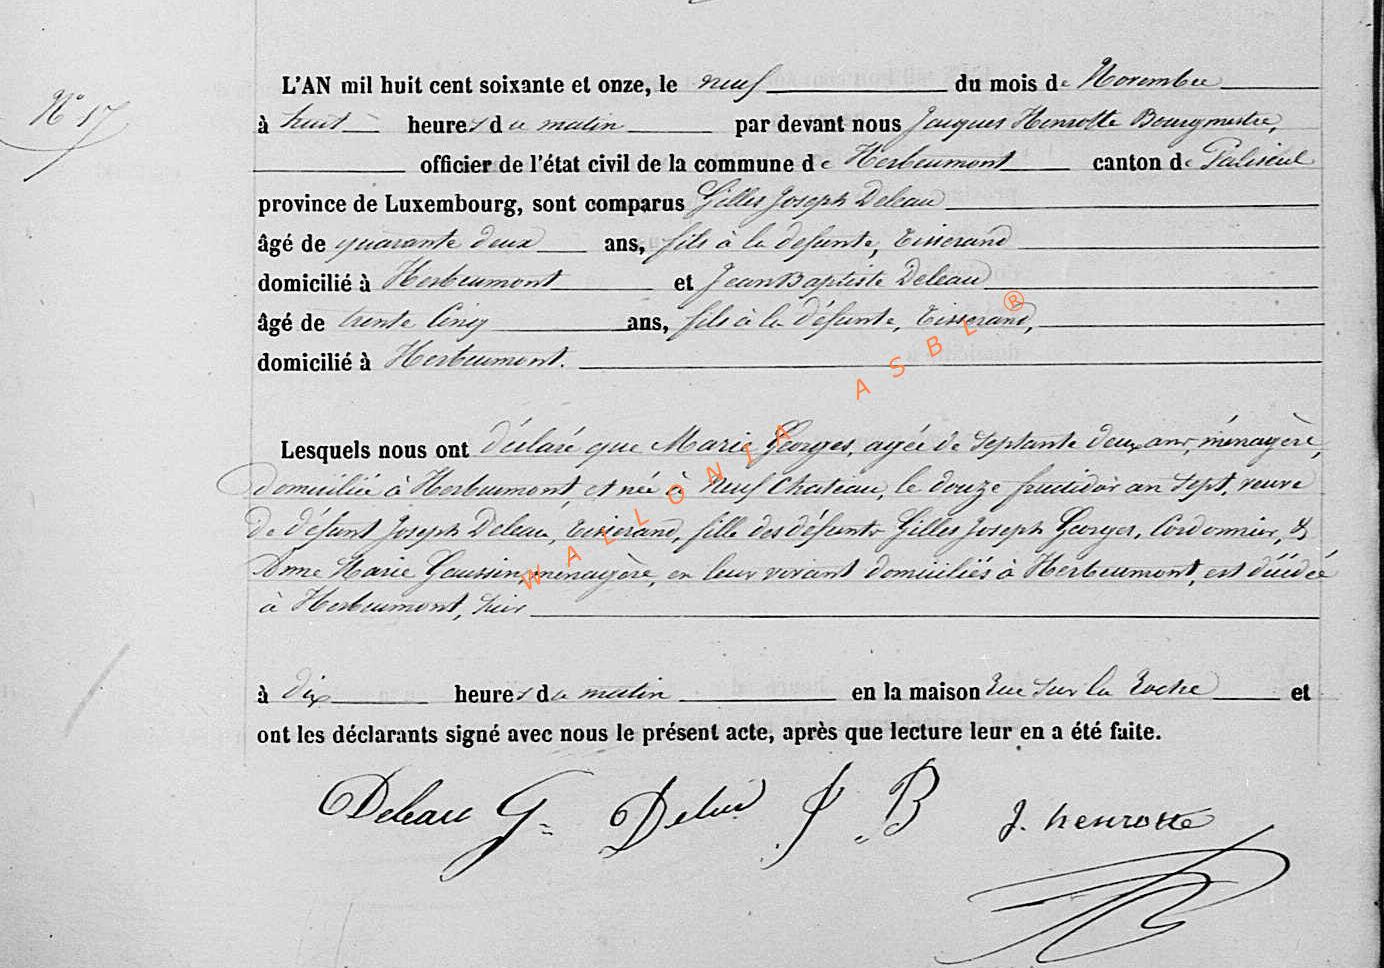 N° 17
L'AN mil huit cent soixante et onze, le neuf du mois de Novembre
à huit heures du matin par devant nous Jacques Henrotte Bourgmestre,
officier de l'état civil de la commune de Herbeumont canton de Paliseul
province de Luxembourg, sont comparus Gilles Joseph Deleau
âgé de quarante deux ans, fils à la defunte, Tisserand
domicilié à Herbeumont et Jean Baptiste Deleau
âgé de trente Cinq ans, fils à la défunte, Tisserand,
domicilié à Herbeumont.
Lesquels nous ont déclaré que Marie Georges, agée de septante deux ans, ménagère,
domiciliée à Herbeumont et née à Neuf Chateau, le douze fructidor an sept, veuve
de défunt Joseph Deleau, Tisserand, fille des défunts Gilles Joseph Georges, Cordonnier, &
Anne Marie Goussin, menagère, en leur vivant domiciliés à Herbeumont, est décédée
à Herbeumont, hier
à dix heures du matin en la maison Rue sur la Roche et
ont les déclarants signé avec nous le présent acte, après que lecture leur en a été faite.
Deleau G Deleau J B J. henrotte
WALLONIA ASBL ®